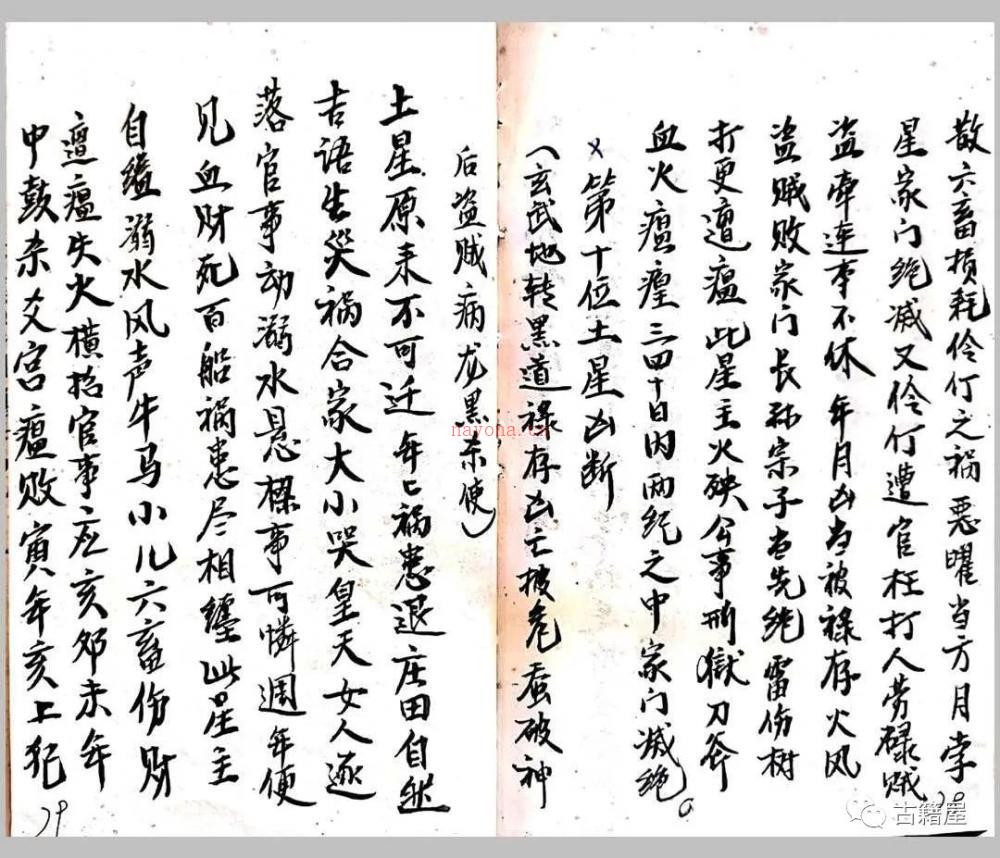 散六畜损耗伶仃之祸恶曜当方月孛
星家门绝减又伶仃遭官枉打人劳碌贼
盗牵连事不休年月凶当被禄存火风
盗贼败家门长孙宗子当先绝雷伤树
打更遭瘟此星主火殃公事刑狱刀斧
血火瘟瘟三四十日内两纪之中家门减绝。
x第十位土星凶断
(玄武地转黑道禄存凶亡披危蚕破神
后盗贼病龙黑杀使)
土星原来不可迁年年祸患退庄田自然
吉语生灾祸合家大小哭皇天女人逐
落官事动溺水悬樑事可憐週年便
见血财死百船祸患尽相缠此星主
自缢溺水风声牛马小儿六畜伤财
遭瘟失火横招官事应亥卯未年
中鼓杀爻宫瘟败寅年亥上犯
29
古籍屋
nayona.cn